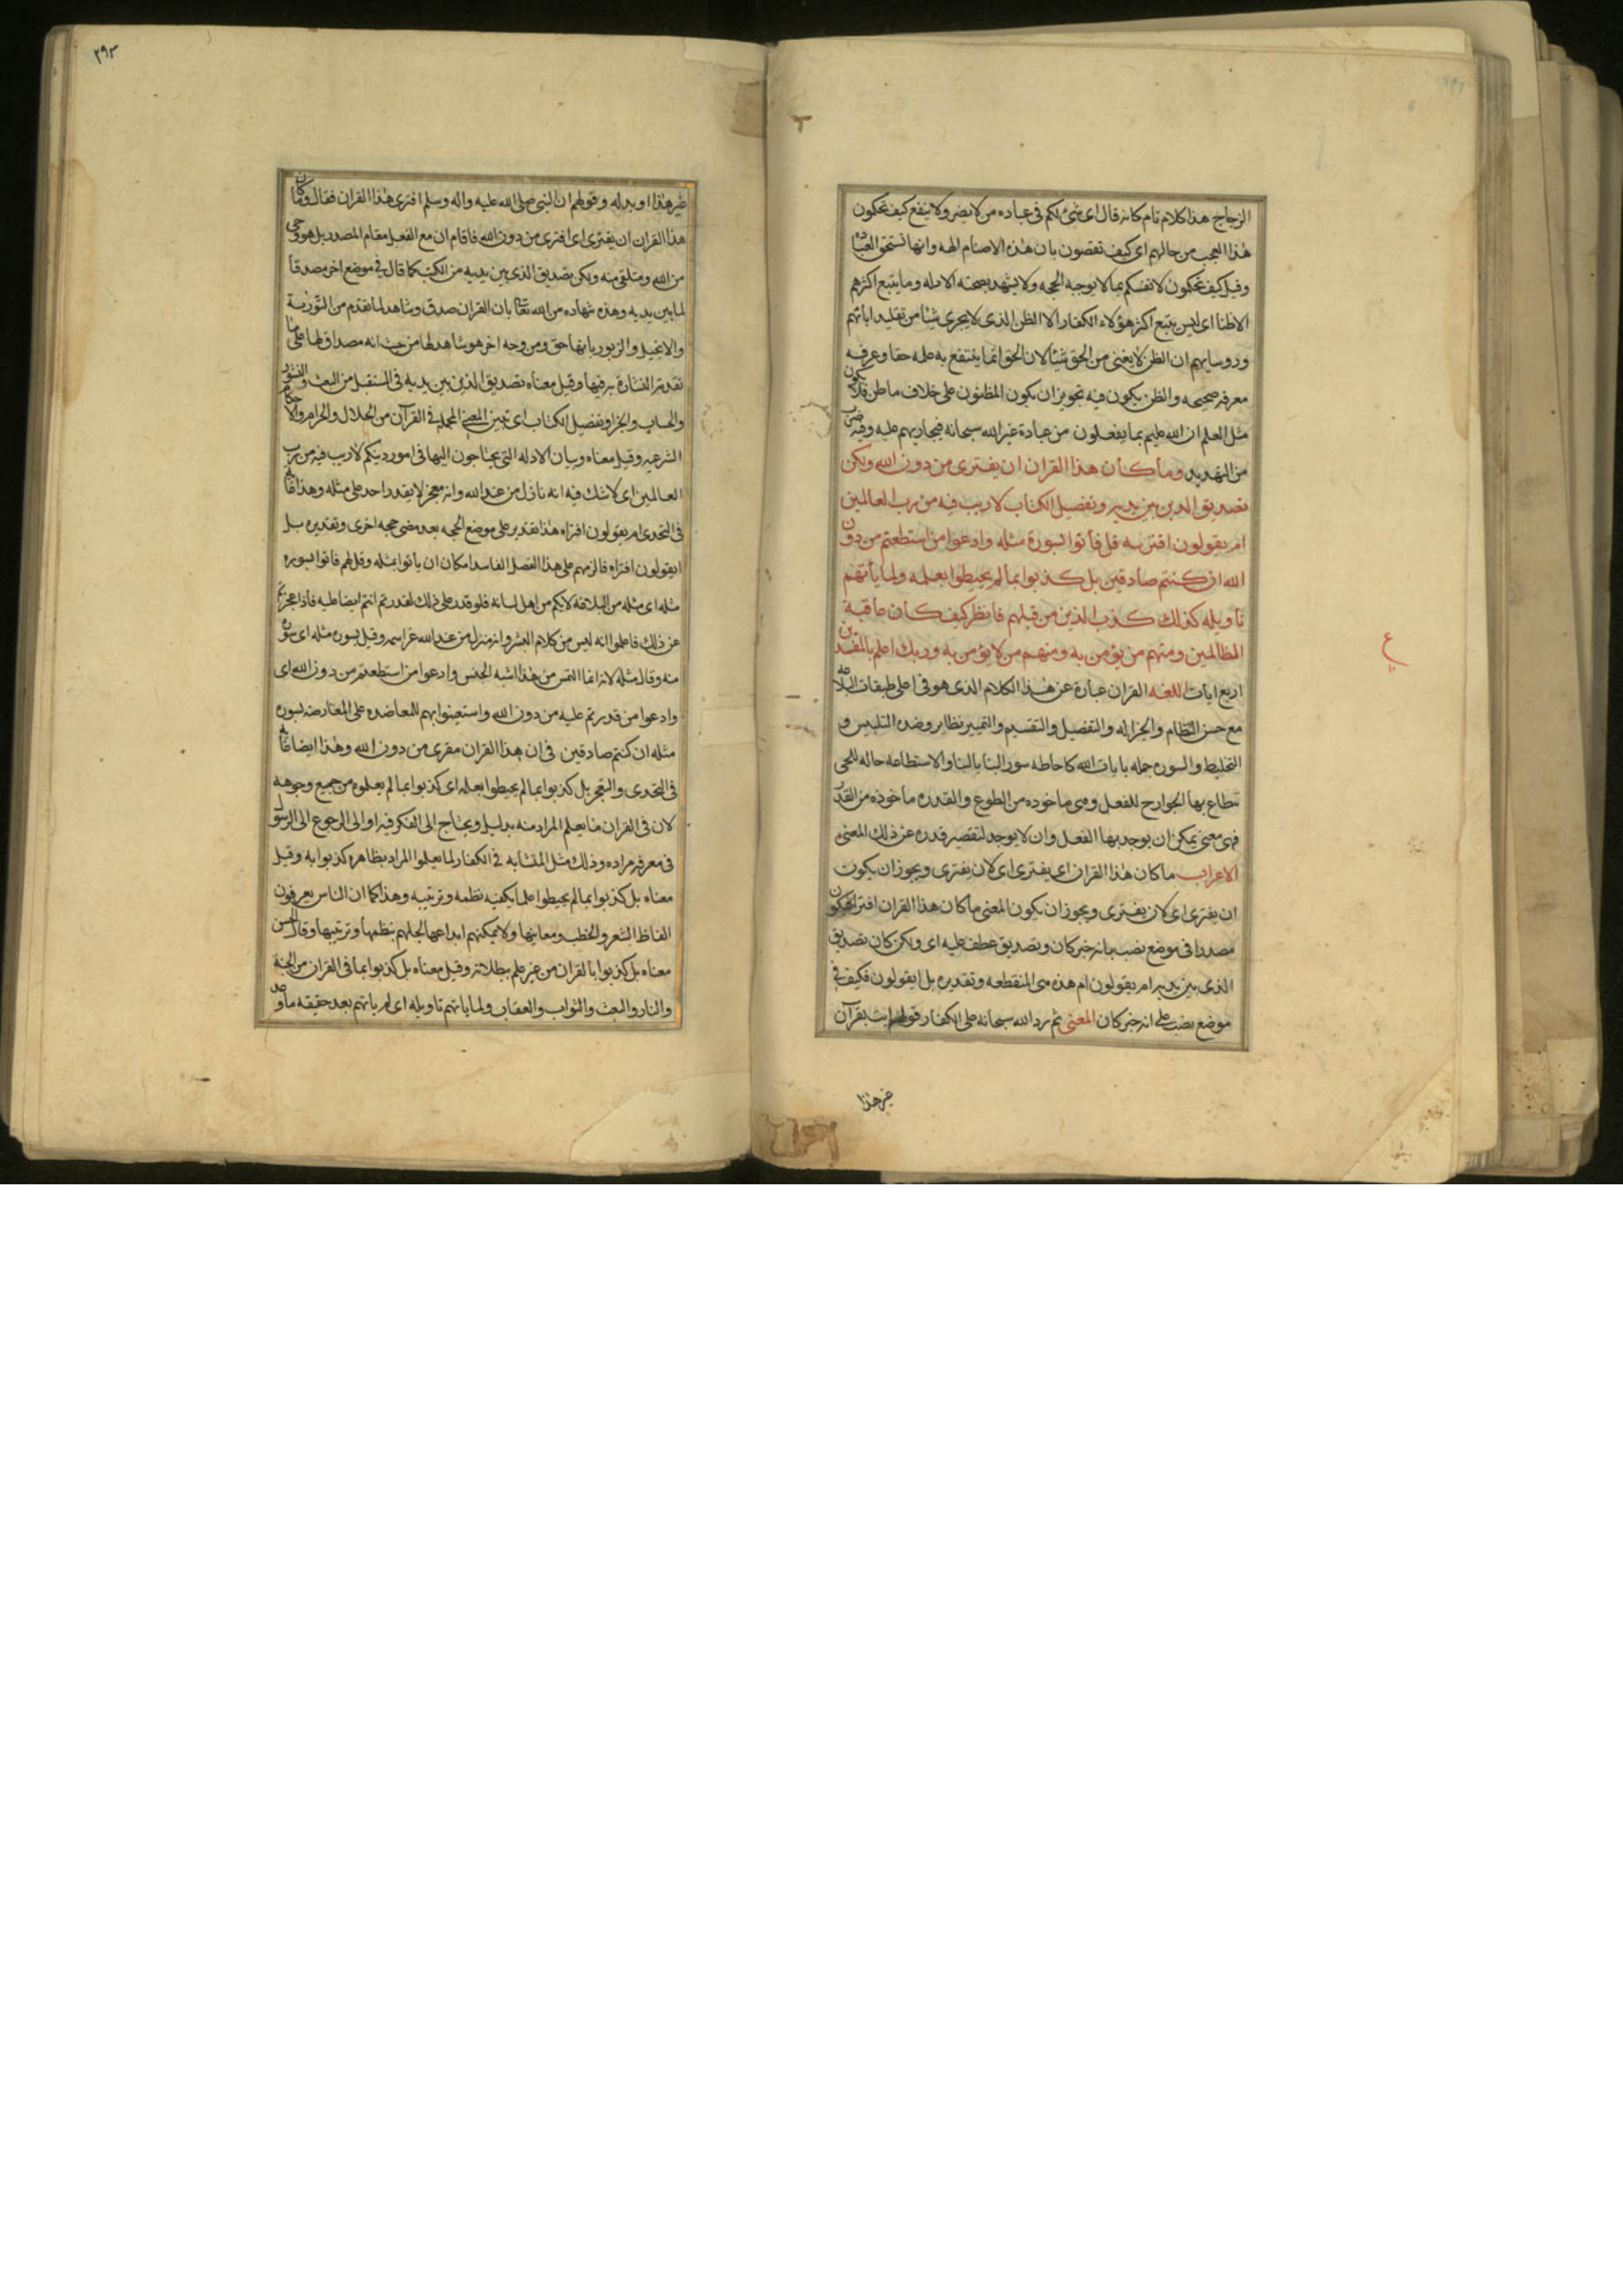 الزجاج هذا كلام تام كانه قال اى شئ لكم فى عباده من لا يضر ولا ينفع كيف تحكمون
هذا العجب من حالهم اى كيف تقضون بان هذه الاصنام الهه وانها تستحق العباده
وقيل كيف تحكمون لانفسكم بما لا يوجبه الحجه ولا يشهد بصحته الادله وما يتبع اكثرهم
الا ظنا اى ليس يتبع اكثر هؤلاء الكفار الا الظن الذى لا يجرى شيئا من تقليد ابائهم
وروسايهم ان الظن لا يغنى من الحق شيئا لان الحق انما ينتفع به من علمه حقا وعرفه
معرفه صحيحه والظن يكون فيه تجويز ان يكون المظنون على خلاف ما ظن فلا يكون
مثل العلم ان الله عليم بما يفعلون من عبادة غير الله سبحانه فيجازيهم عليه وفيه ضرب
من التهديد وما كان هذا القران ان يفترى من دون الله ولكن
تصديق الذى بين يديه وتفصيل الكتاب لا ريب فيه من رب العالمين
ام يقولون افتريه قل فأتوا بسورة مثله وادعوا من استطعتم من دون
الله ان كنتم صادقين بل كذبوا بما لم يحيطوا بعلمه ولما يأتهم
تأويله كذلك كذب الذين من قبلهم فانظر كيف كان عاقبة
الظالمين ومنهم من يؤمن به ومنهم من لا يؤمن به وربك اعلم بالمفسدين
اربع ايات اللغه القران عبارة عن هذا الكلام الذى هو فى اعلى طبقات البلاغه
مع حسن النظام والجزاله والتفصيل والتقسيم والتمييز نظاير وضده التلبيس و
التخليط والسوره جمله بايات الله كاحاطه سور البنا بالبنا والاستطاعه حاله للحى
تنطاع بها الجوارح للفعل وهى ماخوده من الطوع والقدره ماخوذه من القدر
فهى معنى يمكن ان يوجد بها الفعل وان لا يوجد لتقصير قدره عن ذلك المعنى
الاعراب ما كان هذا القران اى يفترى اى لان يفترى ويجوز ان يكون
ان يفترى اى لان يفترى ويجوز ان يكون المعنى ما كان هذا القران افترا فيكون
مصدرا فى موضع نصب بانه خبر كان وتصديق عطف عليه اى ولكن كان تصديق
الذى بين يديه ام يقولون ام هذه هى المنقطعه وتقديره بل ايقولون فكيف فى
موضع نصب على انه خبر كان المعنى ثم رد الله سبحانه على الكفار قولهم ايت بقرآن
غير هذا
ع
٣٩٣
غير هذا او بدله وقولهم ان النبى صلى الله عليه واله وسلم افترى هذا القران فقال وما كان
هذا القران ان يفترى اى افترى من دون الله فاقام ان مع الفعل مقام المصدر بل هو وحى
من الله ومتلقى منه ولكن تصديق الذى بين يديه من الكتب كما قال فى موضع اخر مصدقا
لما بين يديه وهذه شهاده من الله تعالى بان القران صدق وشاهد لما تقدم من التورية
والانجيل والزبور بانها حق ومن وجه اخر هو شاهد لها من حيث انه مصداق لها على ما
تقدمت البشارة به فيها وقيل معناه تصديق الذين بين يديه فى المستقبل من البعث والنشور
والحساب والجزا وتفصيل الكتاب اى تبيين المعنى المجمل فى القرآن من الحلال والحرام والاحكام
الشرعيه وقيل معناه وبيان الادله التى يحتاجون اليها فى امور دينكم لا ريب فيه من رب
العالمين اى لا شك فيه انه نازل من عند الله وانه معجز لا يقدر احد على مثله وهذا غايه
فى التحدى ام يقولون افتراه هذا تقدير على موضع الحجه بعد مضى حجه اخرى وتقديره بل
ايقولون افتراه فالزمهم على هذا الفصل الفاسد امكان ان يأتوا بمثله وقل لهم فاتوا بسوره
مثله اى مثله من البلاغه لانكم من اهل لسانه فلو قدر على ذلك لقدرتم انتم ايضا عليه فاذا عجزتم
عن ذلك فاعلموا انه ليس من كلام البشر وانه منزل من عند الله عز اسمه وقيل بسوره مثله اى سوره
منه وقال مثله لانه انما التمس من هذا اشبه الجنس وادعوا من استطعتم من دون الله اى
وادعوا من قدرتم عليه من دون الله واستعينوا بهم للمعاضده على المعارضه بسوره
مثله ان كنتم صادقين فى ان هذا القران مفترى من دون الله وهذا ايضا غايه
فى التحدى والتعجيز بل كذبوا بما لم يحيطوا بعلمه اى كذبوا بما لم يعلموه من جميع وجوهه
لان فى القران ما يعلم المراد منه بدليل ويحتاج الى الفكر فيه او الى الرجوع الى الرسول
فى معرفه مراده وذلك مثل المتشابه فى الكفار لما لم يعلموا المراد بظاهره كذبوا به وقيل
معناه بل كذبوا بما لم يحيطوا علما بكيفيه نظمه وترتيبه وهذا كما ان الناس يعرفون
الفاظ الشعر والخطب ومعانيها ولا يمكنهم ابداعها لجهلهم بنظمها وترتيبها وقال الحسن
معناه بل كذبوا بالقران من غير علم ببطلانه وقيل معناه بل كذبوا بما فى القران من الجنة
والنار والبعث والثواب والعقاب ولما ياتهم تاويله اى لم ياتهم بعد حقيقه ما وعد